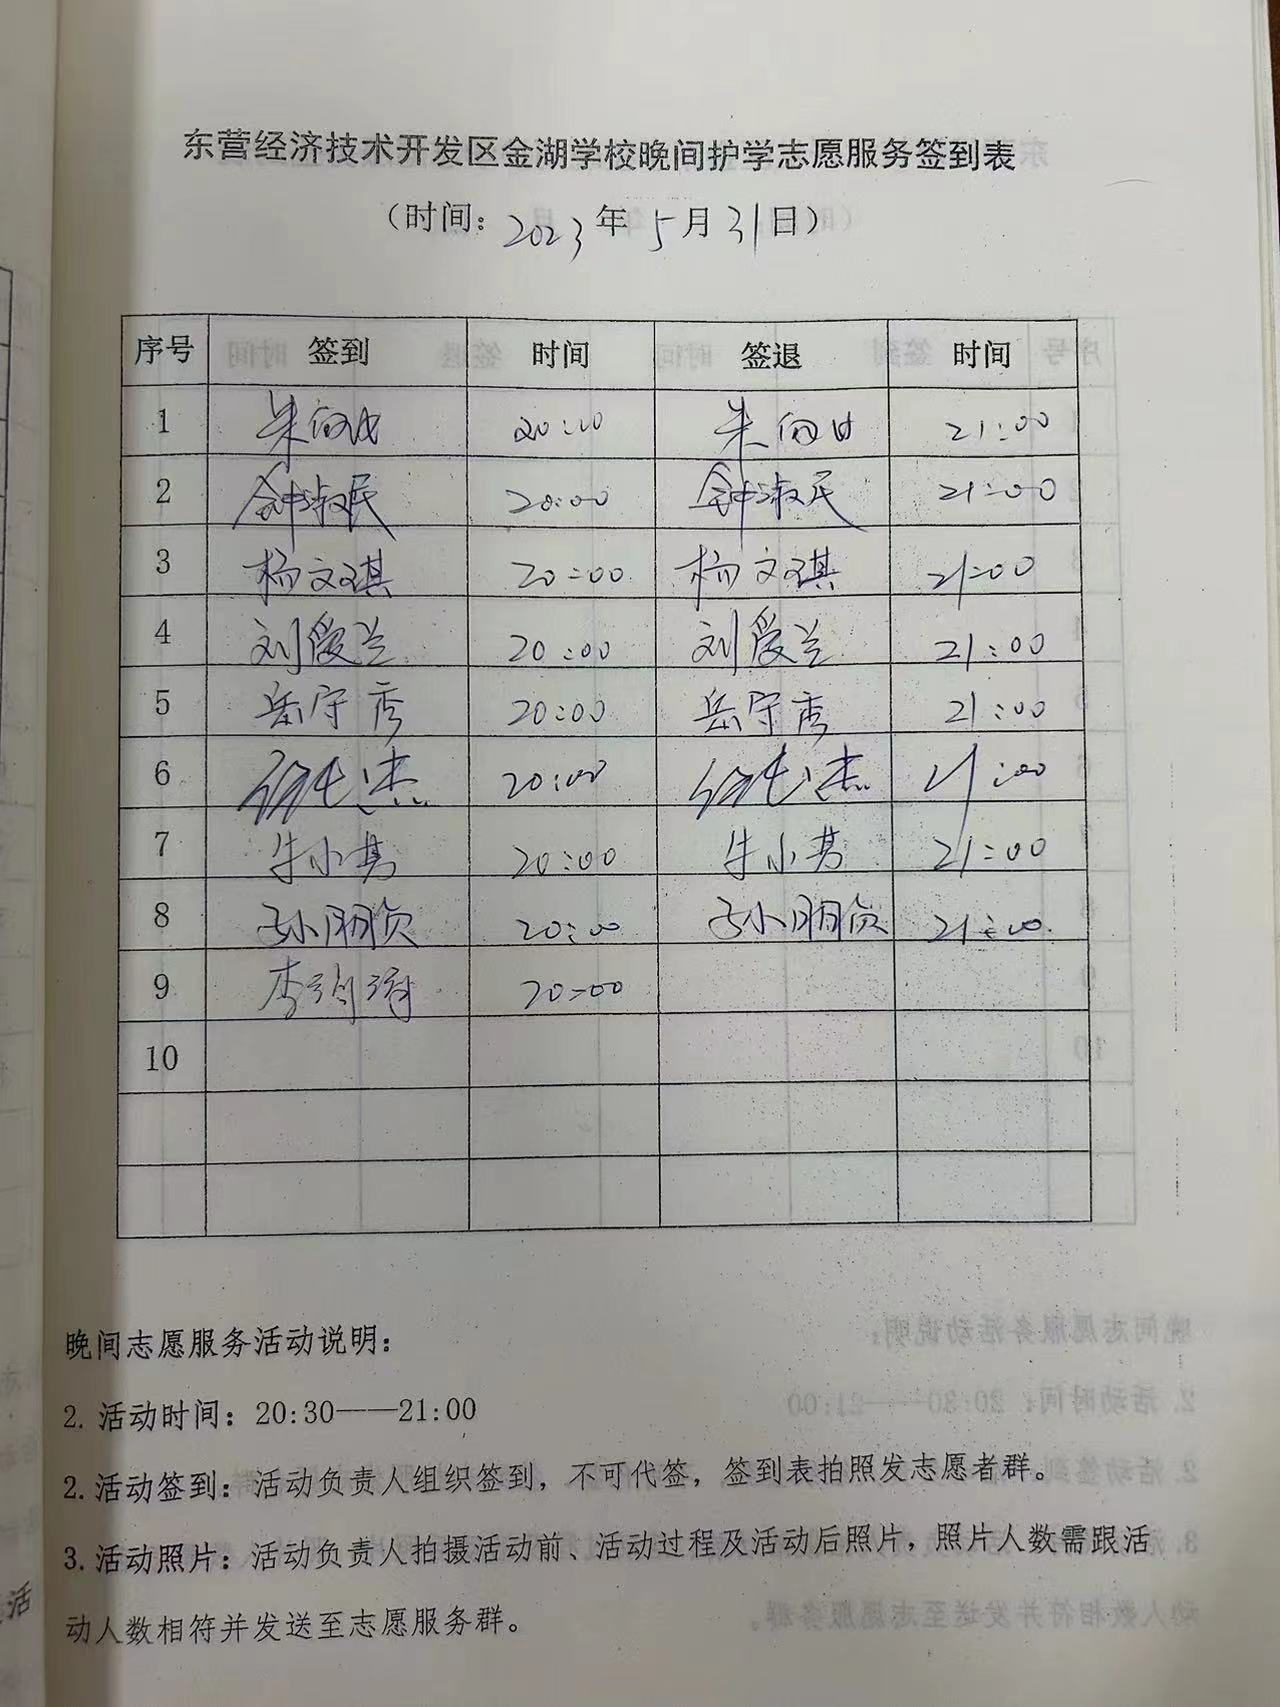 东营经济技术开发区金湖学校晚间护学志愿服务签到表
（时间：2023年5月31日）
序号 签到 时间 签退 时间
1 朱 20:00 朱 21:00
2 钟淑民 20:00 钟淑民 21:00
3 杨文琪 20:00 杨文琪 21:00
4 刘爱兰 20:00 刘爱兰 21:00
5 岳守秀 20:00 岳守秀 21:00
6 20:00 21:00
7 牛小其 20:00 牛小其 21:00
8 20:00 21:00
9 李 20:00
10
晚间志愿服务活动说明：
2. 活动时间：20:30——21:00
2. 活动签到：活动负责人组织签到，不可代签，签到表拍照发志愿者群。
3. 活动照片：活动负责人拍摄活动前、活动过程及活动后照片，照片人数需跟活
动人数相符并发送至志愿服务群。
活